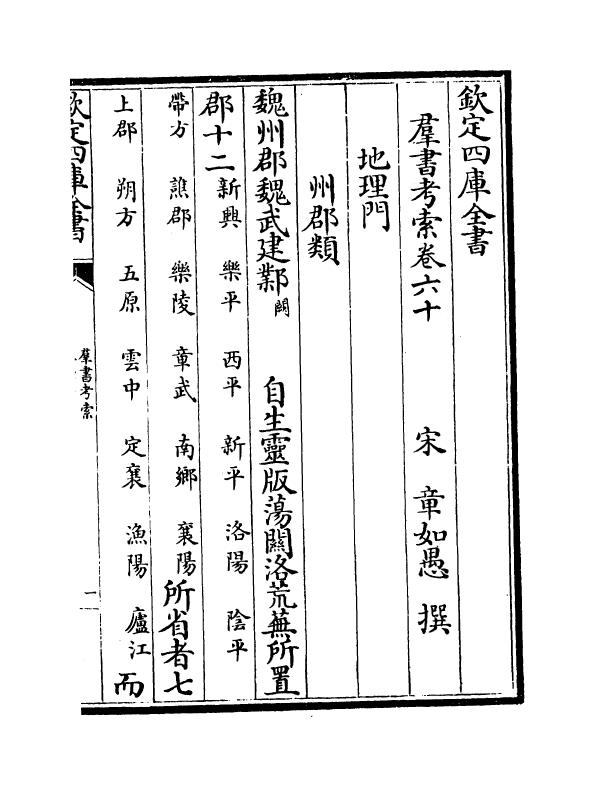 欽定四庫全書
羣書考索卷六十
宋 章如愚 撰
地理門
州郡類
魏州郡魏武建鄴闕 自生靈版蕩關洛荒蕪所置
郡十二新興 樂平 西平 新平 洛陽 陰平
帶方 譙郡 樂陵 章武 南鄉 襄陽所省者七
上郡 朔方 五原 雲中 定襄 漁陽 廬江而
欽定四庫全書
羣書考索
一